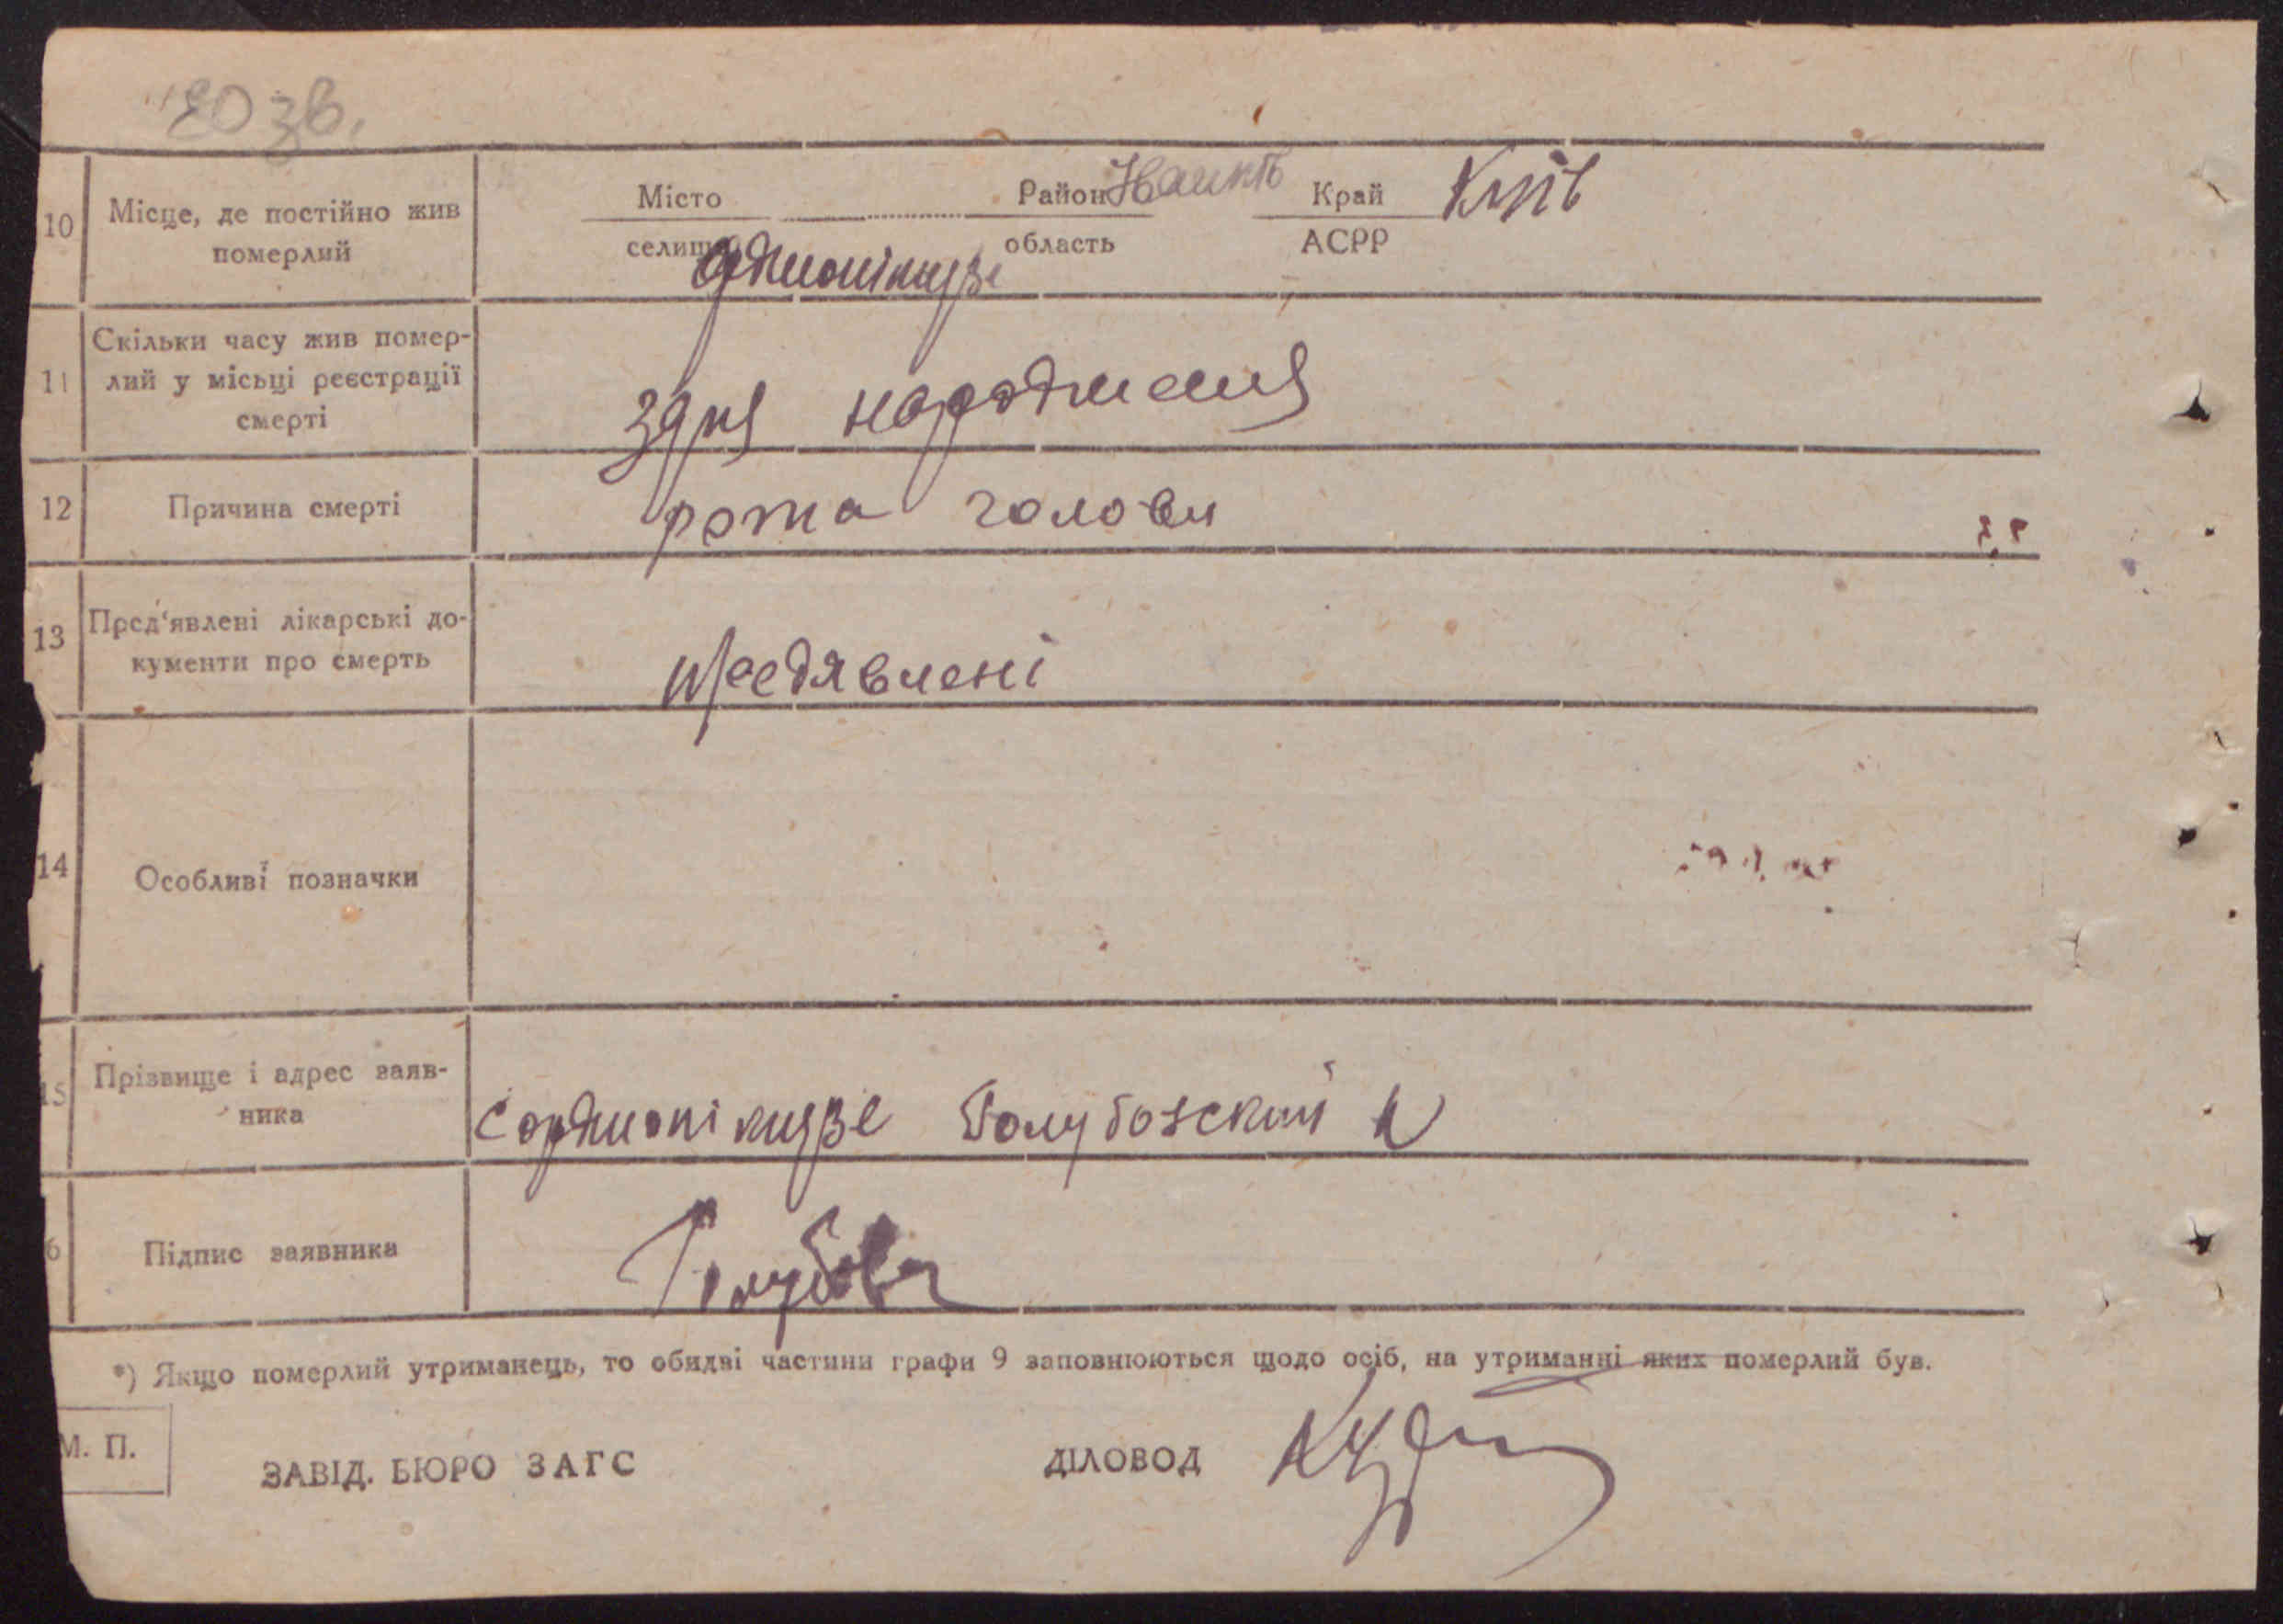 20 зв.
10 Місце, де постійно жив померлий
Місто селище Орджонікідзе Район область Іванків Край АСРР Київ
11 Скільки часу жив помер-
лий у місьці реєстрації
смерті
здня народження
12 Причина смерті рожа голови
13 Пред'явлені лікарські до-
кументи про смерть
предявлені
14 Особливі позначки
15 Прізвище і адрес заяв-
ника
с Орджонікідзе Голубовский
6 Підпис заявника
*) Якщо померлий утриманець, то обидві частини графи 9 заповнюються щодо осіб, на утриманні яких померлий був.
М. П.
ЗАВІД. БЮРО ЗАГС ДІЛОВОД